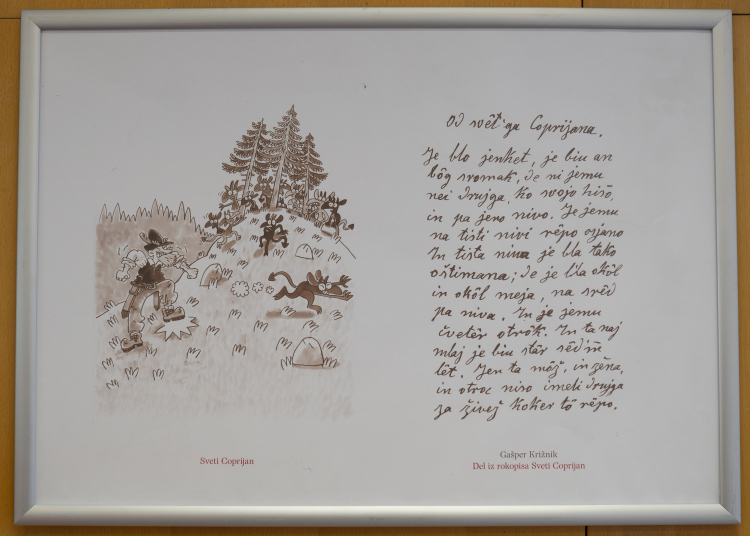 Od svêt'ga Coprijana.
Je blo jenket, je biu an
bôg sromak, de ni jemu
nei drujga, ko svojo hišo,
in pa jeno nivo. Je jemu
na tisti nivi rêpo osjano
In tista niva je bla tako
oštimana; de je šla okôl
in okôl meja, na srêd
pa niva. In je jemu
čvetêr otrôk. In ta naj
mlaj je biu stàr sêdm
lêt. Jen ta môž, in žêna,
in otroc niso imeli drujga
za živež koker tô rêpo.
Sveti Coprijan
Gašper Križnik
Del iz rokopisa Sveti Coprijan